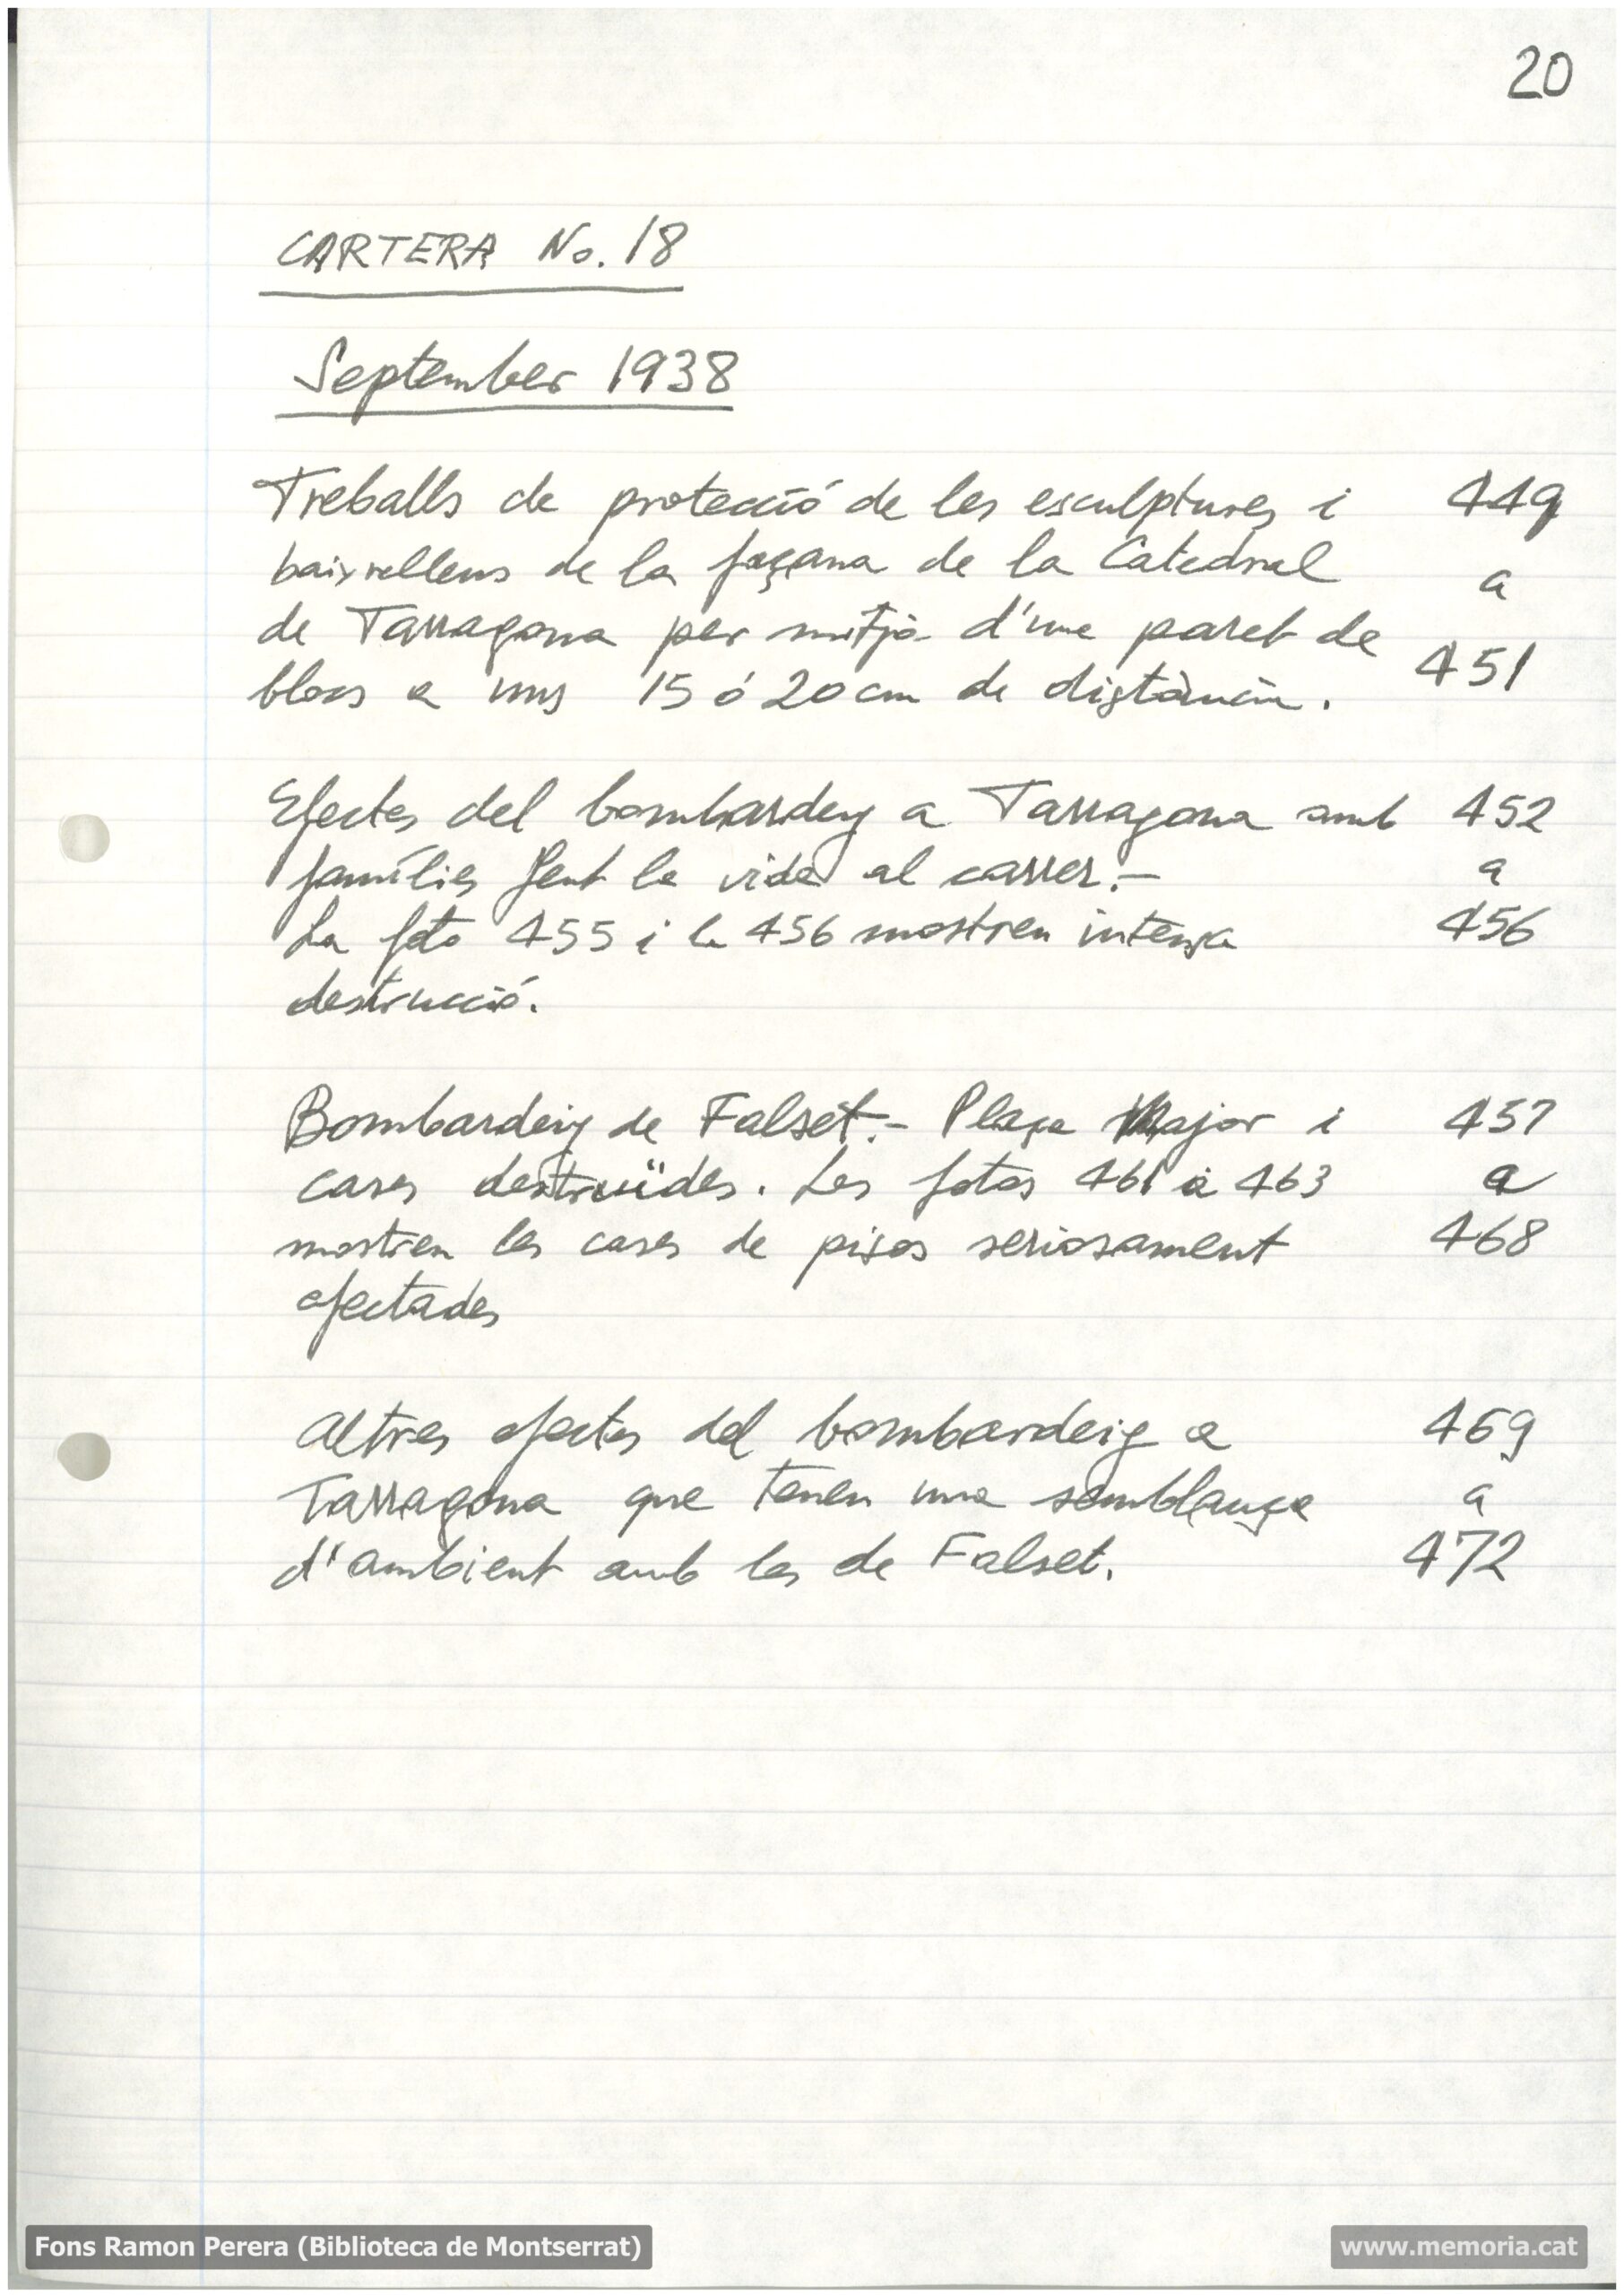 20
CARTERA No. 18
September 1938
Treballs de protecció de les esculptures i 449
baixrelleus de la façana de la Catedral a
de Tarragona per mitjà d'una paret de 451
blocs a uns 15 ó 20 cm de distància.
Efectes del bombardeig a Tarragona amb 452
famílies fent la vida al carrer.- a
La foto 455 i la 456 mostren intensa 456
destrucció.
Bombardeig de Falset.- Plaça Major i 457
cases destruïdes. Les fotos 461 a 463 a
mostren les cases de pisos seriosament 468
afectades
Altres efectes del bombardeig a 469
Tarragona que tenen una semblança a
d'ambient amb les de Falset. 472
Fons Ramon Perera (Biblioteca de Montserrat) www.memoria.cat